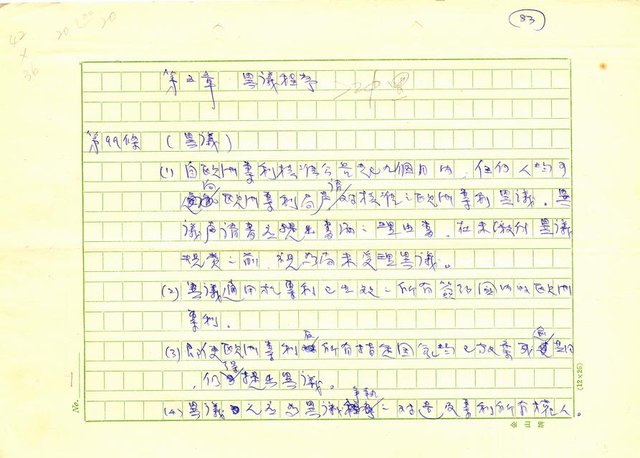 83
42 × 36
20 20
第五章 異議程序
第99條 (異議)
(1) 自歐洲專利核准公告起九個月內,任何人均可
向歐洲專利局聲請對核准之歐洲專利異議。異
議聲請書應提出書面之理由書,在未繳付異議
規費之前,視為尚未受理異議。
(2) 異議適用於專利已生效之所有簽約國內的歐洲
專利.
(3) 即使歐洲專利在所有指定國家均已放棄或
,仍得提出異議。
(4) 異議人應為異議爭執之對造及專利所有權人。
No.
(12×25)
金山牌